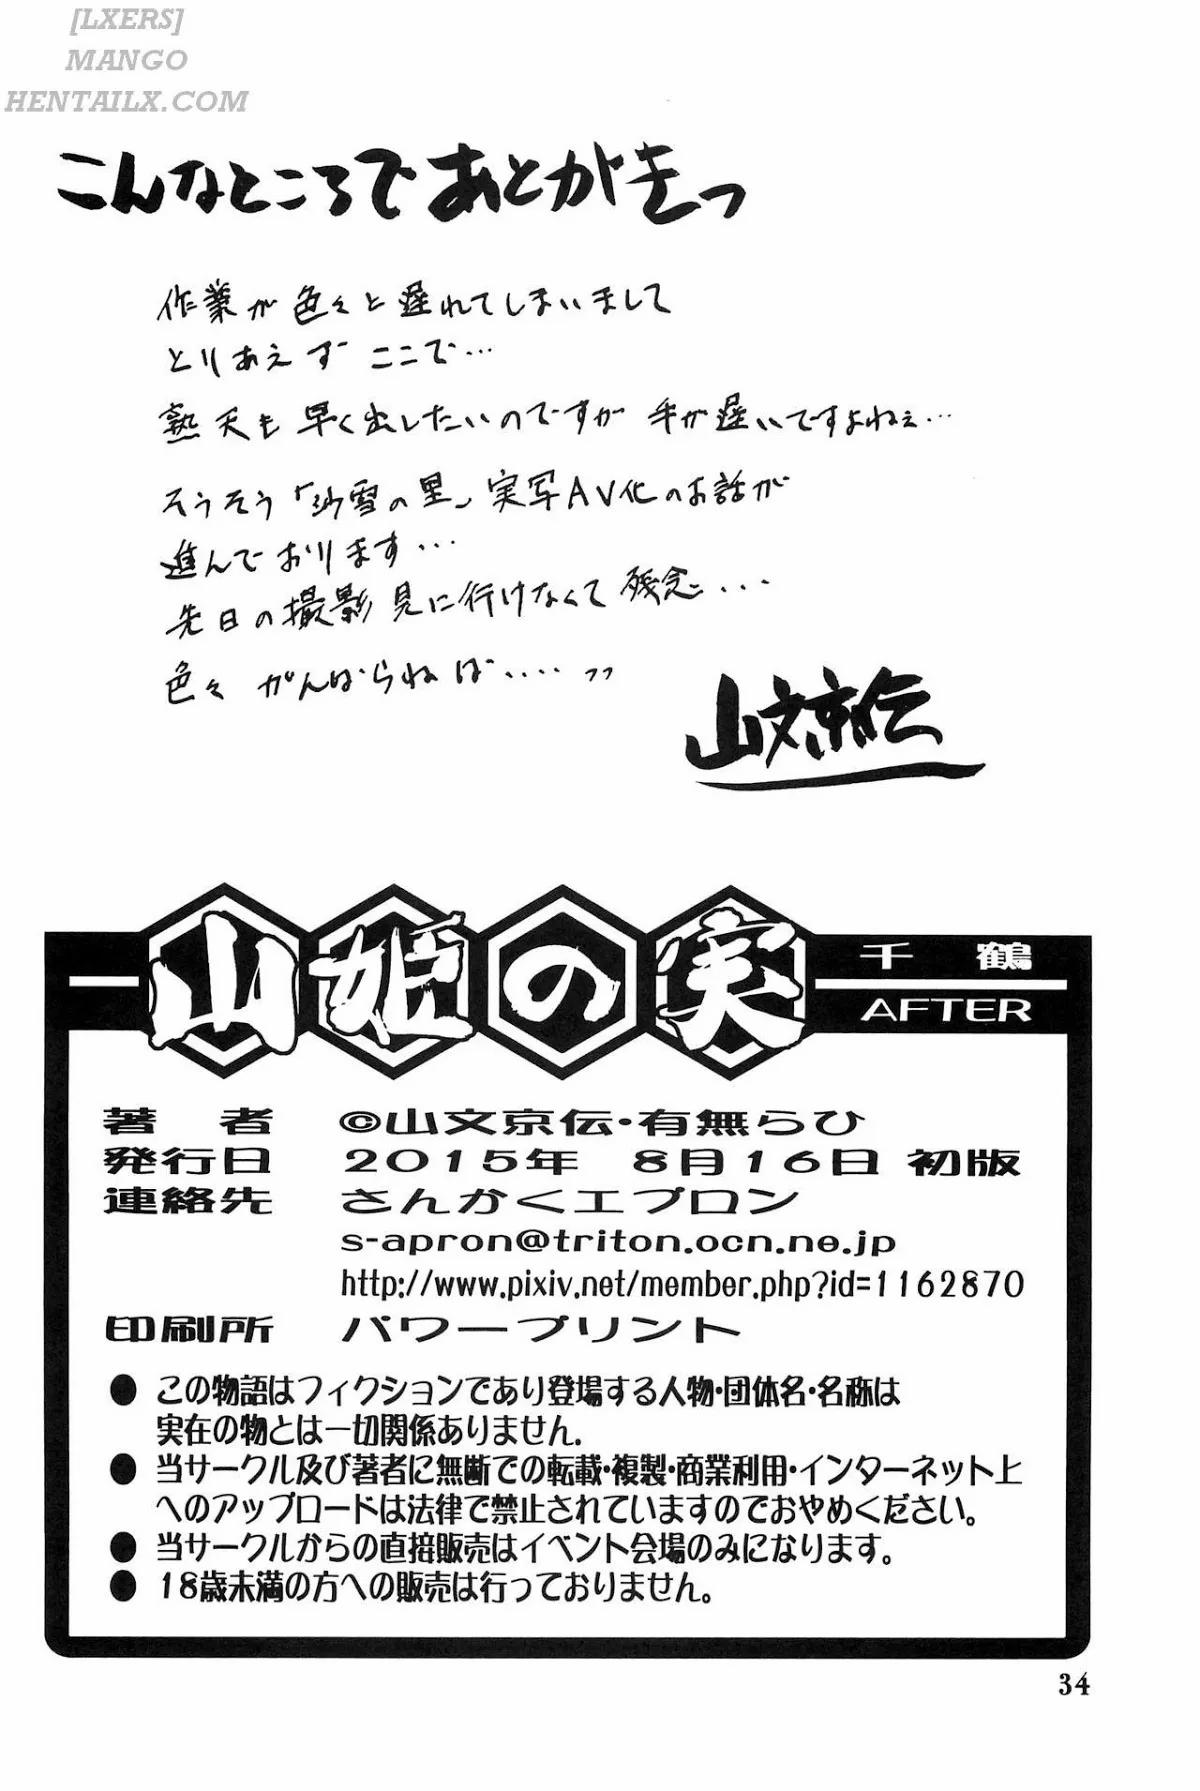 [LXERS]
MANGO
HENTAILX.COM
こんなところであとがきっ
作業が色々と遅れてしまいまして
とりあえず ここで…
熟天も早く出したいのですが 手が遅いですよねぇ…
そうそう「沙雪の里」実写AV化のお話が
進んでおります…
先日の撮影見に行けなくて残念…
色々がんばらねば…っ
山文京伝
山姫の実
千鶴
AFTER
著者 ©山文京伝・有無らひ
発行日 2015年 8月16日 初版
連絡先 さんかくエプロン
s-apron@triton.ocn.ne.jp
http://www.pixiv.net/member.php?id=1162870
印刷所 パワープリント
● この物語はフィクションであり登場する人物・団体名・名称は
実在の物とは一切関係ありません.
● 当サークル及び著者に無断での転載・複製・商業利用・インターネット上
へのアップロードは法律で禁止されていますのでおやめください。
● 当サークルからの直接販売はイベント会場のみになります。
● 18歳未満の方への販売は行っておりません。
34